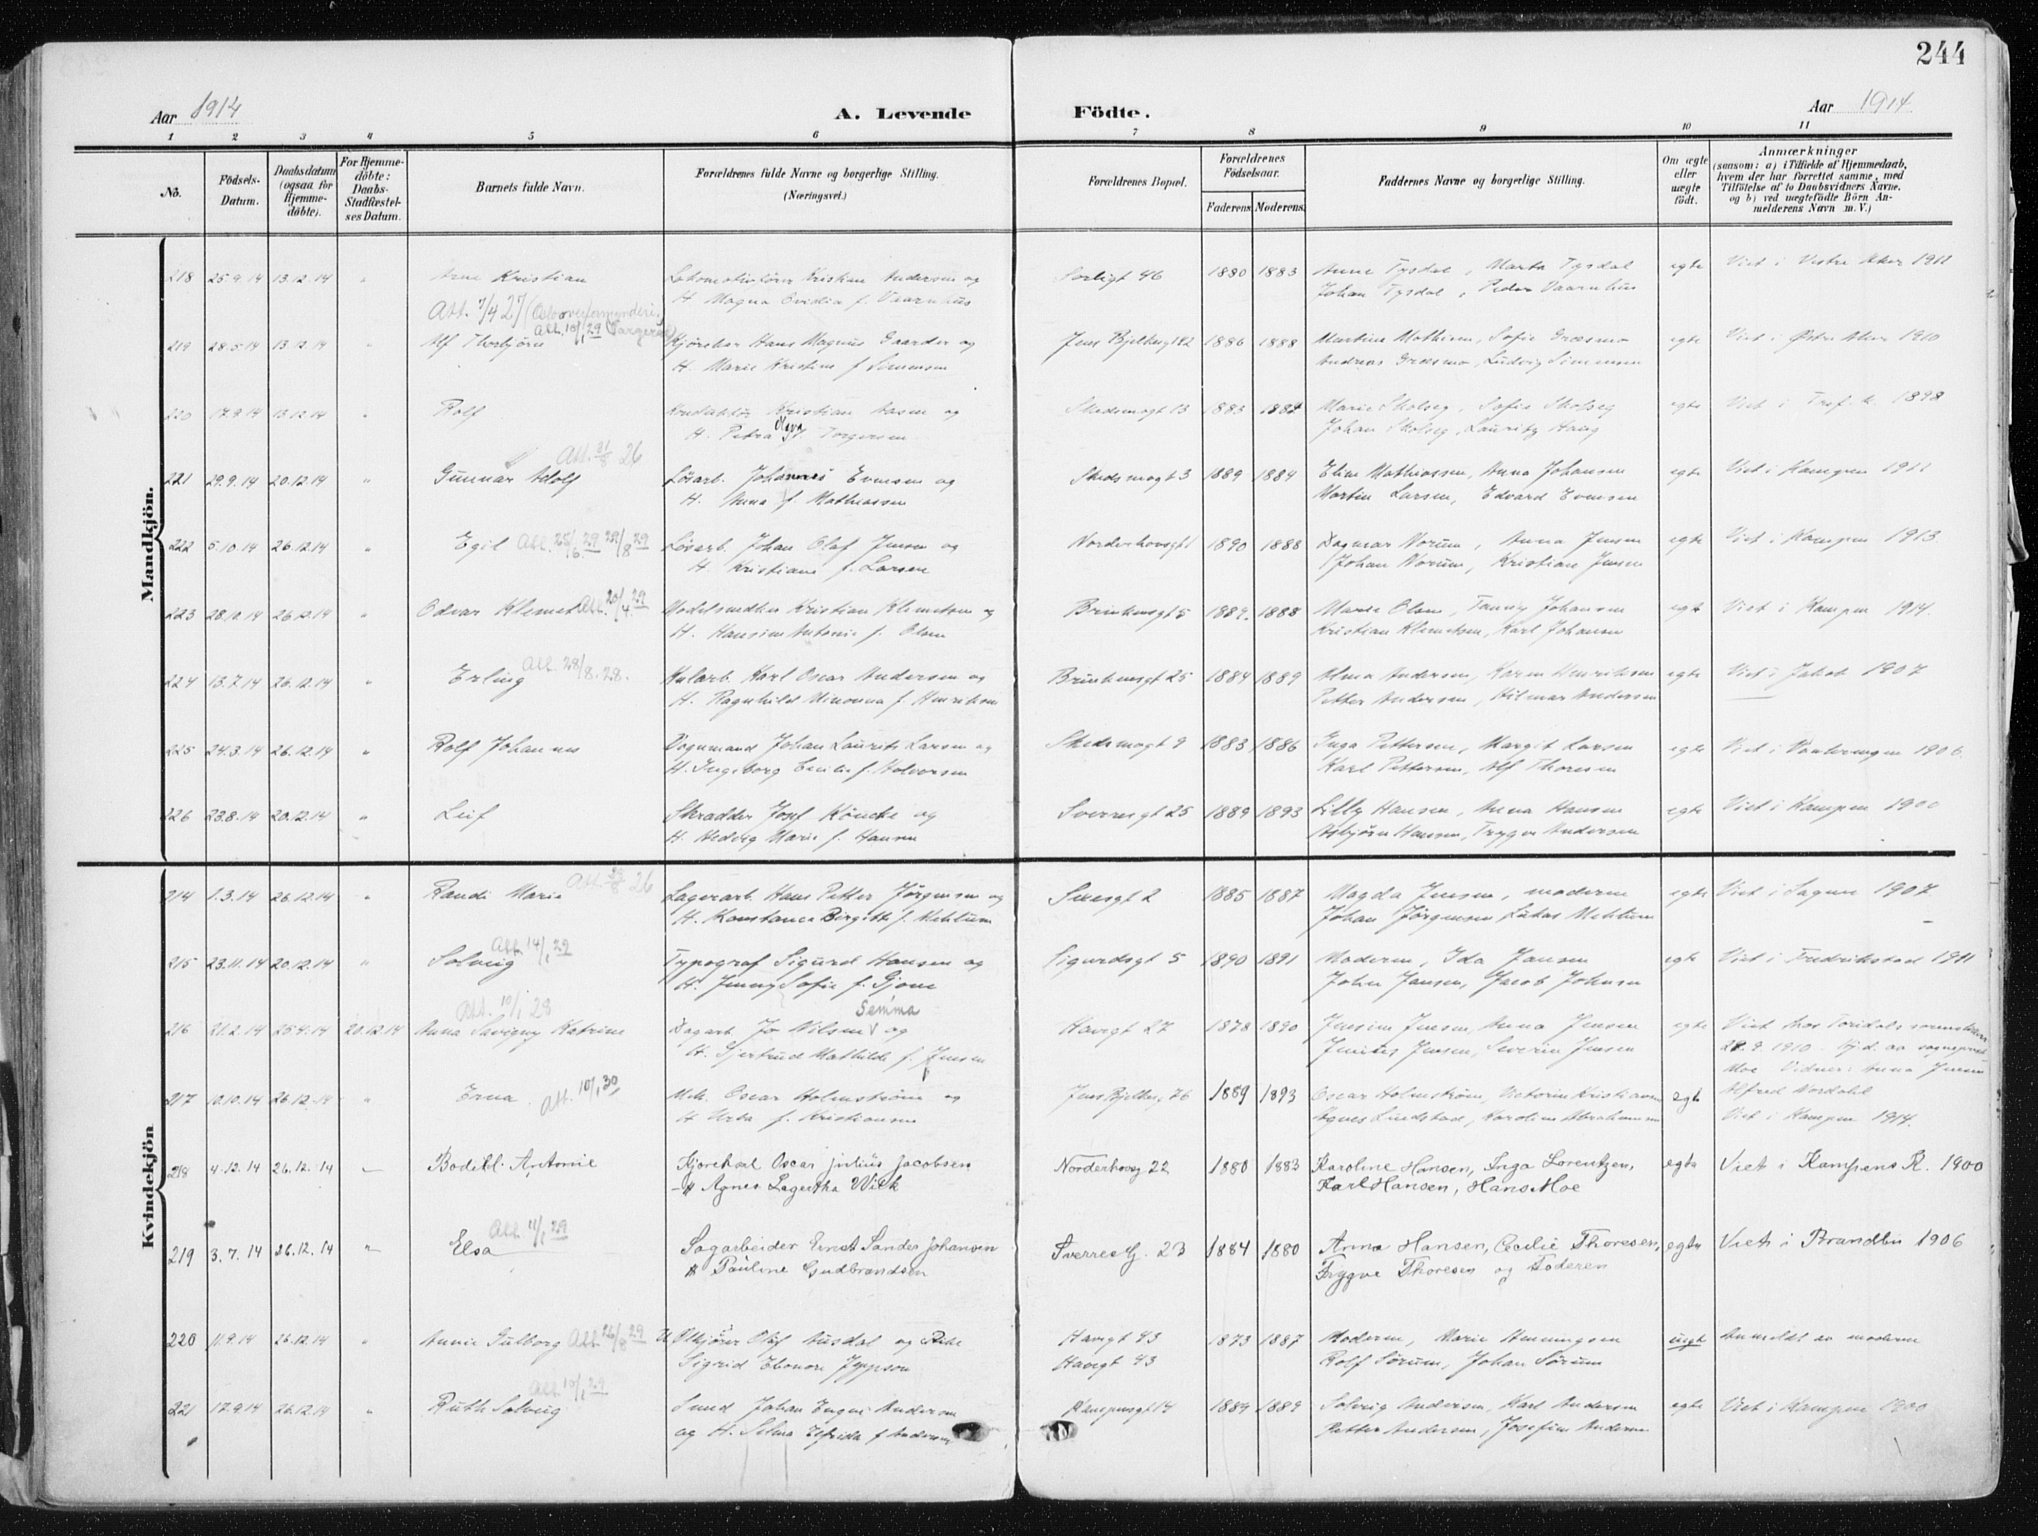 244
Aar 1914 A. Levende Födte. Aar 1914
1 2 3 4 5 6 7 8 9 10 11
Nô. Födsels-Datum. Daabsdatum (ogsaa for Hjemmedöbte). For Hjemmedöbte: Daabs-Stadfæstelses Datum. Barnets fulde Navn. Forældrenes fulde Navne og borgerlige Stilling. (Næringsvei.) Forældrenes Bopæl. Forældrenes Födselsaar. Faderens. Moderens. Faddernes Navne og borgerlige Stilling. Om ægte eller uægte födt. Anmærkninger (saasom: a) i Tilfælde af Hjemmedaab, hvem der har forrettet samme, med Tilföielse af to Daabsvidners Navne. og b) ved uægtefödte Börn Anmelderens Navn m. V.)
Mandkjön.
218 25.9.14 13.12.14 " Arne Kristian Lokomotivfører Kristian Andersen og Sørligt 46 1880 1883 Anne Tysdal, Marta Tysdal egte Viet i Vestre Aker 1911
H. Magna Ovidia f. Vaarnhus Johan Tysdal, Peder Vaarnhus
Att. 7/4 27 (Oslooverformynderi)
Att. 10/1 29
219 28.5.14 13.12.14 " Alf Thorbjørn Kjørekar Hans Magnus Gaarder og Jens Bjelkesg 12 1886 1888 Martine Mathisen, Sofie Græsmo egte Viet i Østre Aker 1910
H. Marie Kristine f. Simensen Andreas Græsmo, Ludvig Simensen
220 17.9.14 13.12.14 " Rolf Konduktør Kristian Aasen og Skedsmogt 13 1883 1884 Marie Skolseg, Sofie Skolseg egte Viet i Tref. k. 1898
H. Petra Olga f. Torgersen Johan Skolseg, Lauritz Haug
Att. 31/8 26
221 29.9.14 20.12.14 " Gunnar Adolf Løsarb. Johannes Evensen og Skedsmogt 3 1889 1884 Eline Mathiassen, Anna Johansen egte Viet i Kampen 1911
H. Anna f. Mathiassen Martin Larsen, Edvard Evensen
222 5.10.14 26.12.14 " Egil Att. 25/6 29 29/8 29 Løsarb. Johan Olaf Jensen og Norderhovsgt 1 1890 1888 Dagmar Norum, Anna Jensen egte Viet i Kampen 1913
H. Kristiane f. Larsen Johan Norum, Kristian Jensen
223 28.10.14 26.12.14 " Odvar Klemet Att. 20/4 29 Modelsnedker Kristian Klemetsen og Brinkensgt 5 1889. 1888 Marie Olsen, Fanny Johansen egt Viet i Kampen 1914.
H. Hansine Antonie f. Olsen Kristian Klemetsen, Karl Johansen
224 13.7.14 26.12.14 " Erling Att. 28/8. 28. Kularb. Karl Oscar Andersen og Brinkensgt 25 1884 1889 Alma Andersen, Karen Henriksen egte Viet i Jakob 1907
H. Ragnhild Minonna f. Henriksen Petter Andersen, Hilmar Andersen
225 24.3.14 26.12.14 " Rolf Johannes Vognmand Johan Laurits Larsen og Skedsmogt 9 1883 1886 Inga Pettersen, Margit Larsen egte Viet i Vaalerengen 1906
H. Ingeborg Cecilie f. Halvorsen Karl Pettersen, Alf Thoresen
226 23.8.14 20.12.14 " Leif Skrædder Josef Köncke og Sverresgt 25 1889 1893 Lilly Hansen, Anna Hansen egte Viet i Kampen 1900
H. Hedvig Marie f. Hansen Asbjørn Hansen, Trygve Andersen
Kvindekjön
214 1.3.14 26.12.14 " Randi Marie Att. 28/8 26 Lagerarb. Hans Petter Jørgensen og 1885 1887 Magda Jensen, moderen egte Viet i Sagene 1907
H. Konstance Bergitte f. Mehlum Johan Jørgensen, Lukas Mehlum
215 23.11.14 20.12.14 " Solveig Att. 14/1 29 Typograf Sigurd Hansen og Sigurdsgt 5 1890 1891 Moderen, Ida Jansen egte Viet i Fredrikstad 1911
H. Jenny Sofie f. Gjone John Jansen, Jacob Johnsen
Att. 10/1 28
216 21.2.14 25.4.14 20.12.14 Anna Katrine Dagarb. Jo Nilsen Semma og Havegt 27 1878 1890 Jensine Jensen, Anna Jensen egte Viet hos
H. Gjertrud Mathilde f. Jensen Jensen, Severin Jensen 28.9.1910. Hj.d. av sognepræst Moe Vidner: Anna Jensen Alfred Nordahl
217 12.10.14 26.12.14 " Erna Att. 10/1 30 Mek. Oscar Holmstrøm og Jens Bjelkesg 76 1889 1893 Oscar Holmstrøm, Victorin Kristiansen egte Viet i Kampen 1914.
H. f. Kristiansen Agnes Lindstad, Karoline Abrahamsen
218 4.12.14 26.12.14 " Bodil Antonie Kjørekarl Oscar Julius Jacobsen Norderhovsg 22 1880 1883 Karoline Hansen, Inga Lorentzen, egte Viet i Kampens K. 1900
H Agnes Lagertha Wick Karl Hansen, Hans Moe
219 3.7.14 26.12.14 " Elsa Att. 11/1 29 Sagarbeider Ernst Sander Johansen Sverres G. 23 1884 1880 Anna Hansen, Cecilie Thoresen, egte Viet i Brandbu 1906
H Pauline Gudbrandsen Trygve Thoresen og Faderen
220 11.9.14 26.12.14 " Annie Gulborg Att. 26/8 29 Olaf Ausdal og Pike Havegt 43 1873 1887 Moderen, Marie Henningsen uegt Anmeldt av moderen
Sigrid Elenore Jeppson Havegt 43 Rolf Sørum, Johan Sørum
Att. 10/1 29
221 17.9.14 26.12.14 " Ruth Solveig Smed Johan Yngve Andersen Kampensgt 14 1889 1889 Solveig Andersen, Karl Andersen egte Viet i Kampen 1900
og H. Selma Elfrida f Andersen Petter Andersen, Josefine Andersen